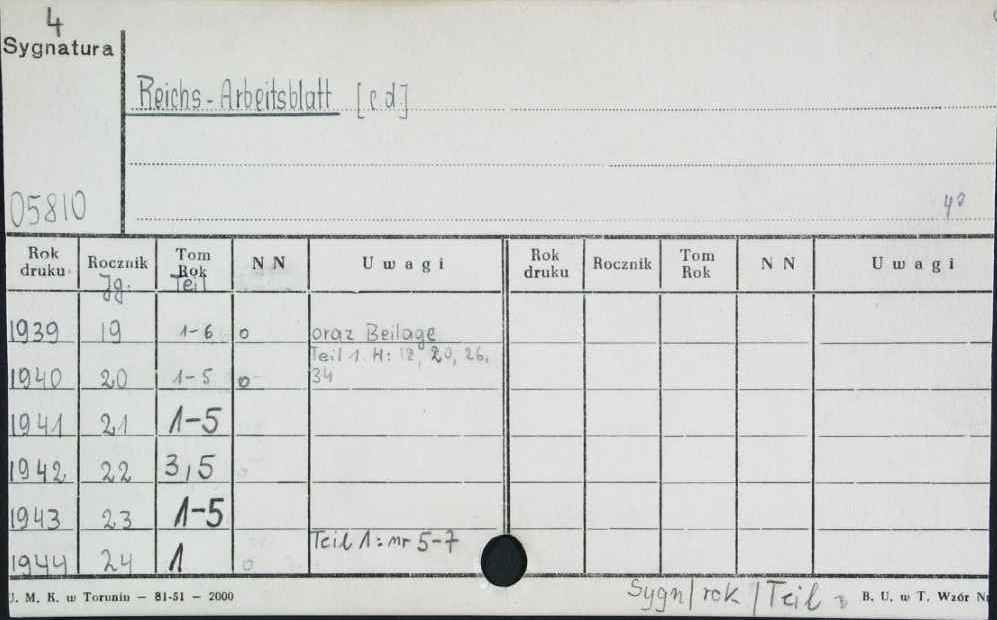 4
Sygnatura
Reichs-Arbeitsblatt [c.d.]
05810
4°
Rok druku Rocznik Tom Rok NN Uwagi Rok druku Rocznik Tom Rok NN Uwagi
Jg. Teil
1939 19 1-6 o oraz Beilage
Teil 1. H: 12, 20, 26,
1940 20 1-5 o 34
1941 21 1-5
1942 22 3,5
1943 23 1-5
Teil 1: nr 5-7
1944 24 1 o
U. M. K. w Toruniu — 81-51 — 2000
Sygn/rok/Teil
B. U. w T. Wzór Nr